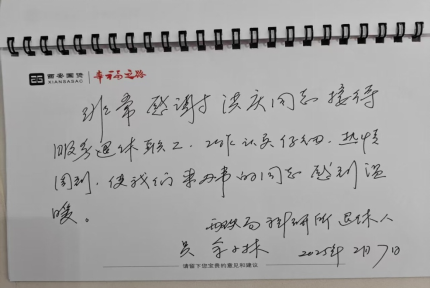 西安国贸 幸福之路
XIANSASAC
非常感谢洪庆同志接待
服务退休职工，工作认真仔细，热情
周到，使我们来办事的同志感到温
暖。
西铁局科研所退休人
员 余小林 2025年2月7日
请留下您宝贵的意见和建议